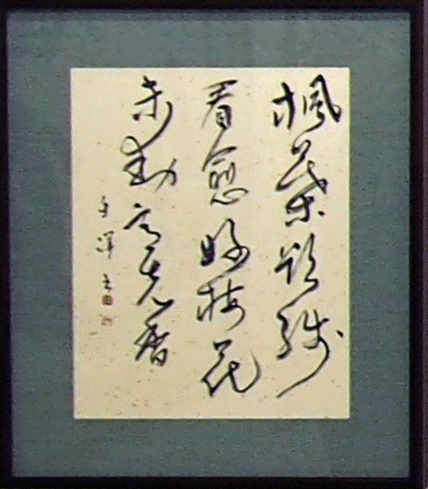 楓葉欲殘
看愈好梅花
未動意先香